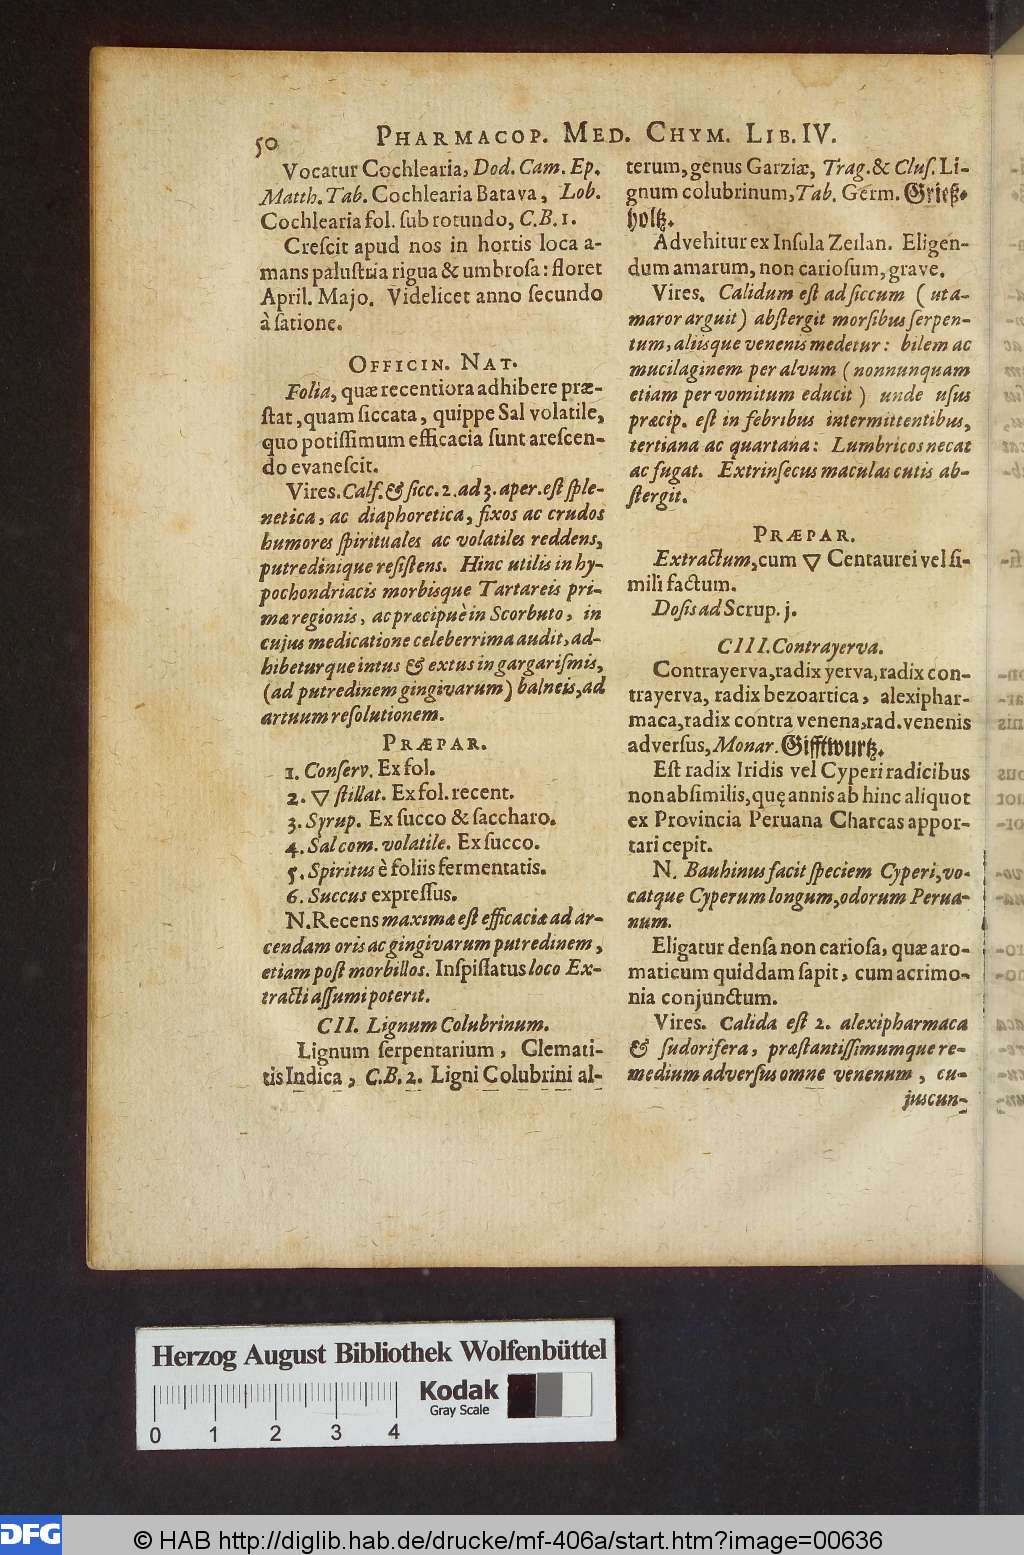 50
PHARMACOP. MED. CHYM. LIB. IV.
Vocatur Cochlearia, Dod. Cam. Ep.
Matth. Tab. Cochlearia Batava, Lob.
Cochlearia fol. ſub rotundo, C.B. 1.
Creſcit apud nos in hortis loca a-
mans paluſtria rigua & umbroſa: floret
April. Majo. Videlicet anno ſecundo
à ſatione.
OFFICIN. NAT.
Folia, quæ recentiora adhibere præ-
ſtat, quam ſiccata, quippe Sal volatile,
quo potiſſimum efficacia ſunt areſcen-
do evaneſcit.
Vires. Calf. & ſicc. 2. ad 3. aper. eſt ſple-
netica, ac diaphoretica, fixos ac crudos
humores ſpirituales ac volatiles reddens,
putredinique reſiſtens. Hinc utilis in hy-
pochondriacis morbisque Tartareis pri-
mæ regionis, ac præcipuè in Scorbuto, in
cujus medicatione celeberrima audit, ad-
hibeturque intus & extus in gargariſmis,
(ad putredinem gingivarum) balneis, ad
artuum reſolutionem.
PRÆPAR.
1. Conſerv. Ex fol.
2. ▽ ſtillat. Ex fol. recent.
3. Syrup. Ex ſucco & ſaccharo.
4. Sal com. volatile. Ex ſucco.
5. Spiritus è foliis fermentatis.
6. Succus expreſſus.
N. Recens maximæ eſt efficaciæ ad ar-
cendam oris ac gingivarum putredinem,
etiam poſt morbillos. Inſpiſſatus loco Ex-
tracti aſſumi poterit.
CII. Lignum Colubrinum.
Lignum ſerpentarium, Clemati-
tis Indica, C.B. 2. Ligni Colubrini al-
terum, genus Garziæ, Trag. & Cluſ. Li-
gnum colubrinum, Tab. Germ. Grieß-
holtz.
Advehitur ex Inſula Zeilan. Eligen-
dum amarum, non carioſum, grave.
Vires. Calidum eſt ad ſiccum (ut a-
maror arguit) abſtergit morſibus ſerpen-
tum, aliisque venenis medetur: bilem ac
mucilaginem per alvum (nonnunquam
etiam per vomitum educit) unde uſus
præcip. eſt in febribus intermittentibus,
tertiana ac quartana: Lumbricos necat
ac fugat. Extrinſecus maculas cutis ab-
ſtergit.
PRÆPAR.
Extractum, cum ▽ Centaurei vel ſi-
mili factum.
Doſis ad Scrup. j.
CIII. Contrayerva.
Contrayerva, radix yerva, radix con-
trayerva, radix bezoartica, alexiphar-
maca, radix contra venena, rad. venenis
adverſus, Monar. Gifftwurtz.
Eſt radix Iridis vel Cyperi radicibus
non abſimilis, quę annis ab hinc aliquot
ex Provincia Peruana Charcas appor-
tari cepit.
N. Bauhinus facit ſpeciem Cyperi, vo-
catque Cyperum longum, odorum Perua-
num.
Eligatur denſa non carioſa, quæ aro-
maticum quiddam ſapit, cum acrimo-
nia conjunctum.
Vires. Calida eſt 2. alexipharmaca
& ſudorifera, præſtantiſſimumque re-
medium adverſus omne venenum, cu-
juscun-
Herzog August Bibliothek Wolfenbüttel
Kodak
Gray Scale
0 1 2 3 4
DFG
© HAB http://diglib.hab.de/drucke/mf-406a/start.htm?image=00636